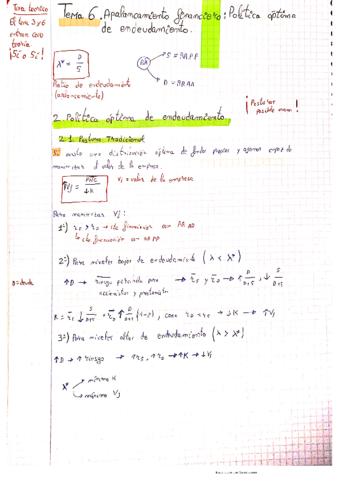 Tema teórico
El tema 3 y 6
entran como
teoría
¡Sí o Sí!
Tema 6. Apalancamiento financiero: Política óptima
de endeudamiento.
λ* = D / S
RA
S = RRPP
D = RRAA
Ratio de endeudamiento
(apalancamiento)
¡ Posturas
posible examen !
2. Política óptima de endeudamiento
2.1. Postura Tradicional
Sí existe una distribución óptima de fondos propios y ajenos capaz de
maximizar el valor de la empresa.
↑Vj = FNC / ↓K
Vj = valor de la empresa
Para maximizar Vj:
1º) rs > rD → cte financiación con RRAA
↳ cte financiación con RRPP
2º) Para niveles bajos de endeudamiento (λ < λ*)
D = deuda
↑D → riesgo percibido por accionistas y prestamistas → rs y rD → ↑ D/D+S , ↓ S/D+S
K = rs ↓ S/D+S + rD ↑ D/D+S (1-t), como rD < rs → ↓K → ↑Vj
3º) Para niveles altos de endeudamiento (λ > λ*)
↑D → ↑riesgo → ↑rs, ↑rD → ↑K → ↓Vj
λ*
mínimo K
máximo Vj